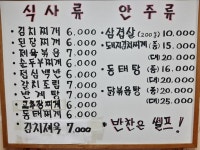 식사류
김치찌개 6.000
된장찌개 6.000
제육볶음 7.000
순두부찌개 6.000
점심백반 6.000
갈치조림 7.000
6.000
6.000
동태찌개 6.000
김치제육 7.000
안주류
삼겹살 (200g) 10.000
돼지김치찌개 (중) 15.000
(대) 20.000
동태탕 (중) 16.000
(대) 20.000
닭볶음탕 (중) 20.000
(대) 25.000
반찬은 셀프!